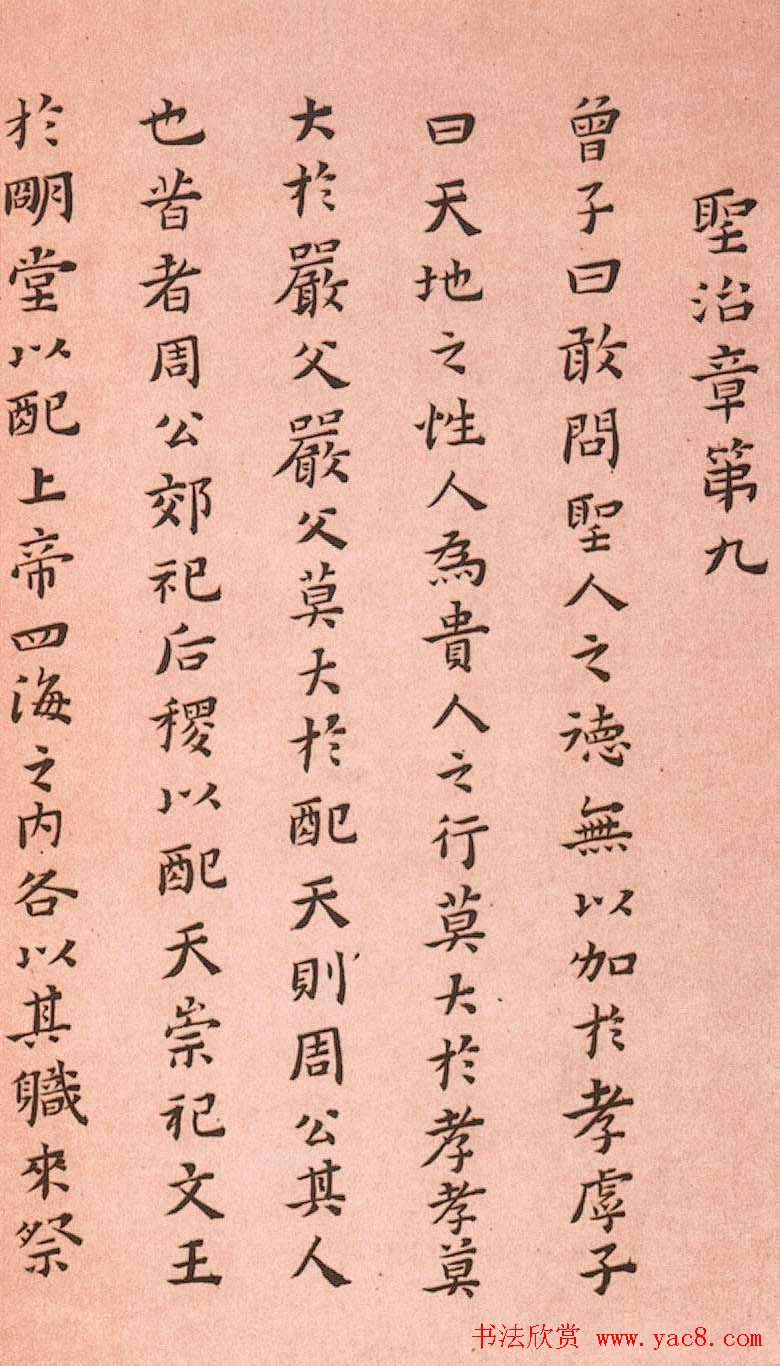 聖治章第九
曾子曰敢問聖人之德無以加於孝虖子
曰天地之性人為貴人之行莫大於孝孝莫
大於嚴父嚴父莫大於配天則周公其人
也昔者周公郊祀后稷以配天崇祀文王
於明堂以配上帝四海之内各以其職來祭
书法欣赏 www.yac8.com